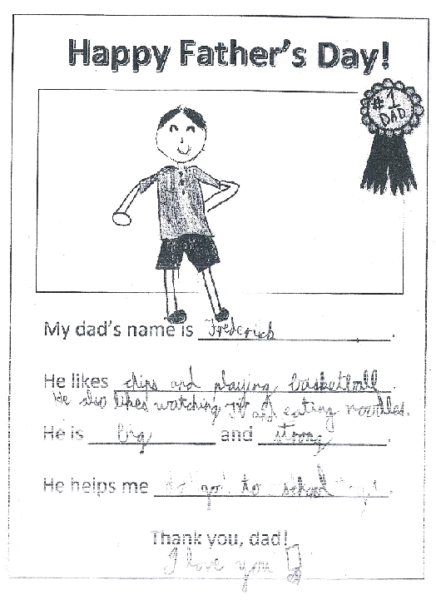 Happy Father's Day!
#1
DAD
My dad's name is Frederick.
He likes chips and playing basketball.
He also likes watching TV and eating noodles.
He is big and strong.
He helps me go to school
Thank you, dad!
I love you